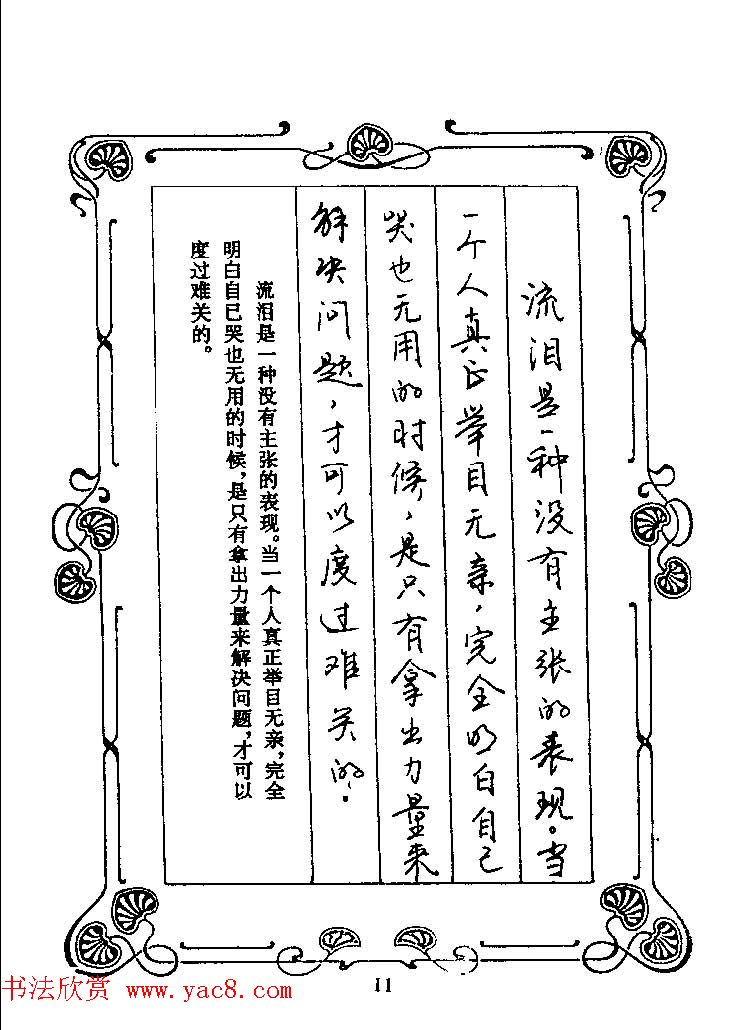 流泪是一种没有主张的表现。当
一个人真正举目无亲，完全明白自己
哭也无用的时候，是只有拿出力量来
解决问题，才可以度过难关的。
流泪是一种没有主张的表现。当一个人真正举目无亲，完全
明白自己哭也无用的时候，是只有拿出力量来解决问题，才可以
度过难关的。
11
书法欣赏 www.yac8.com